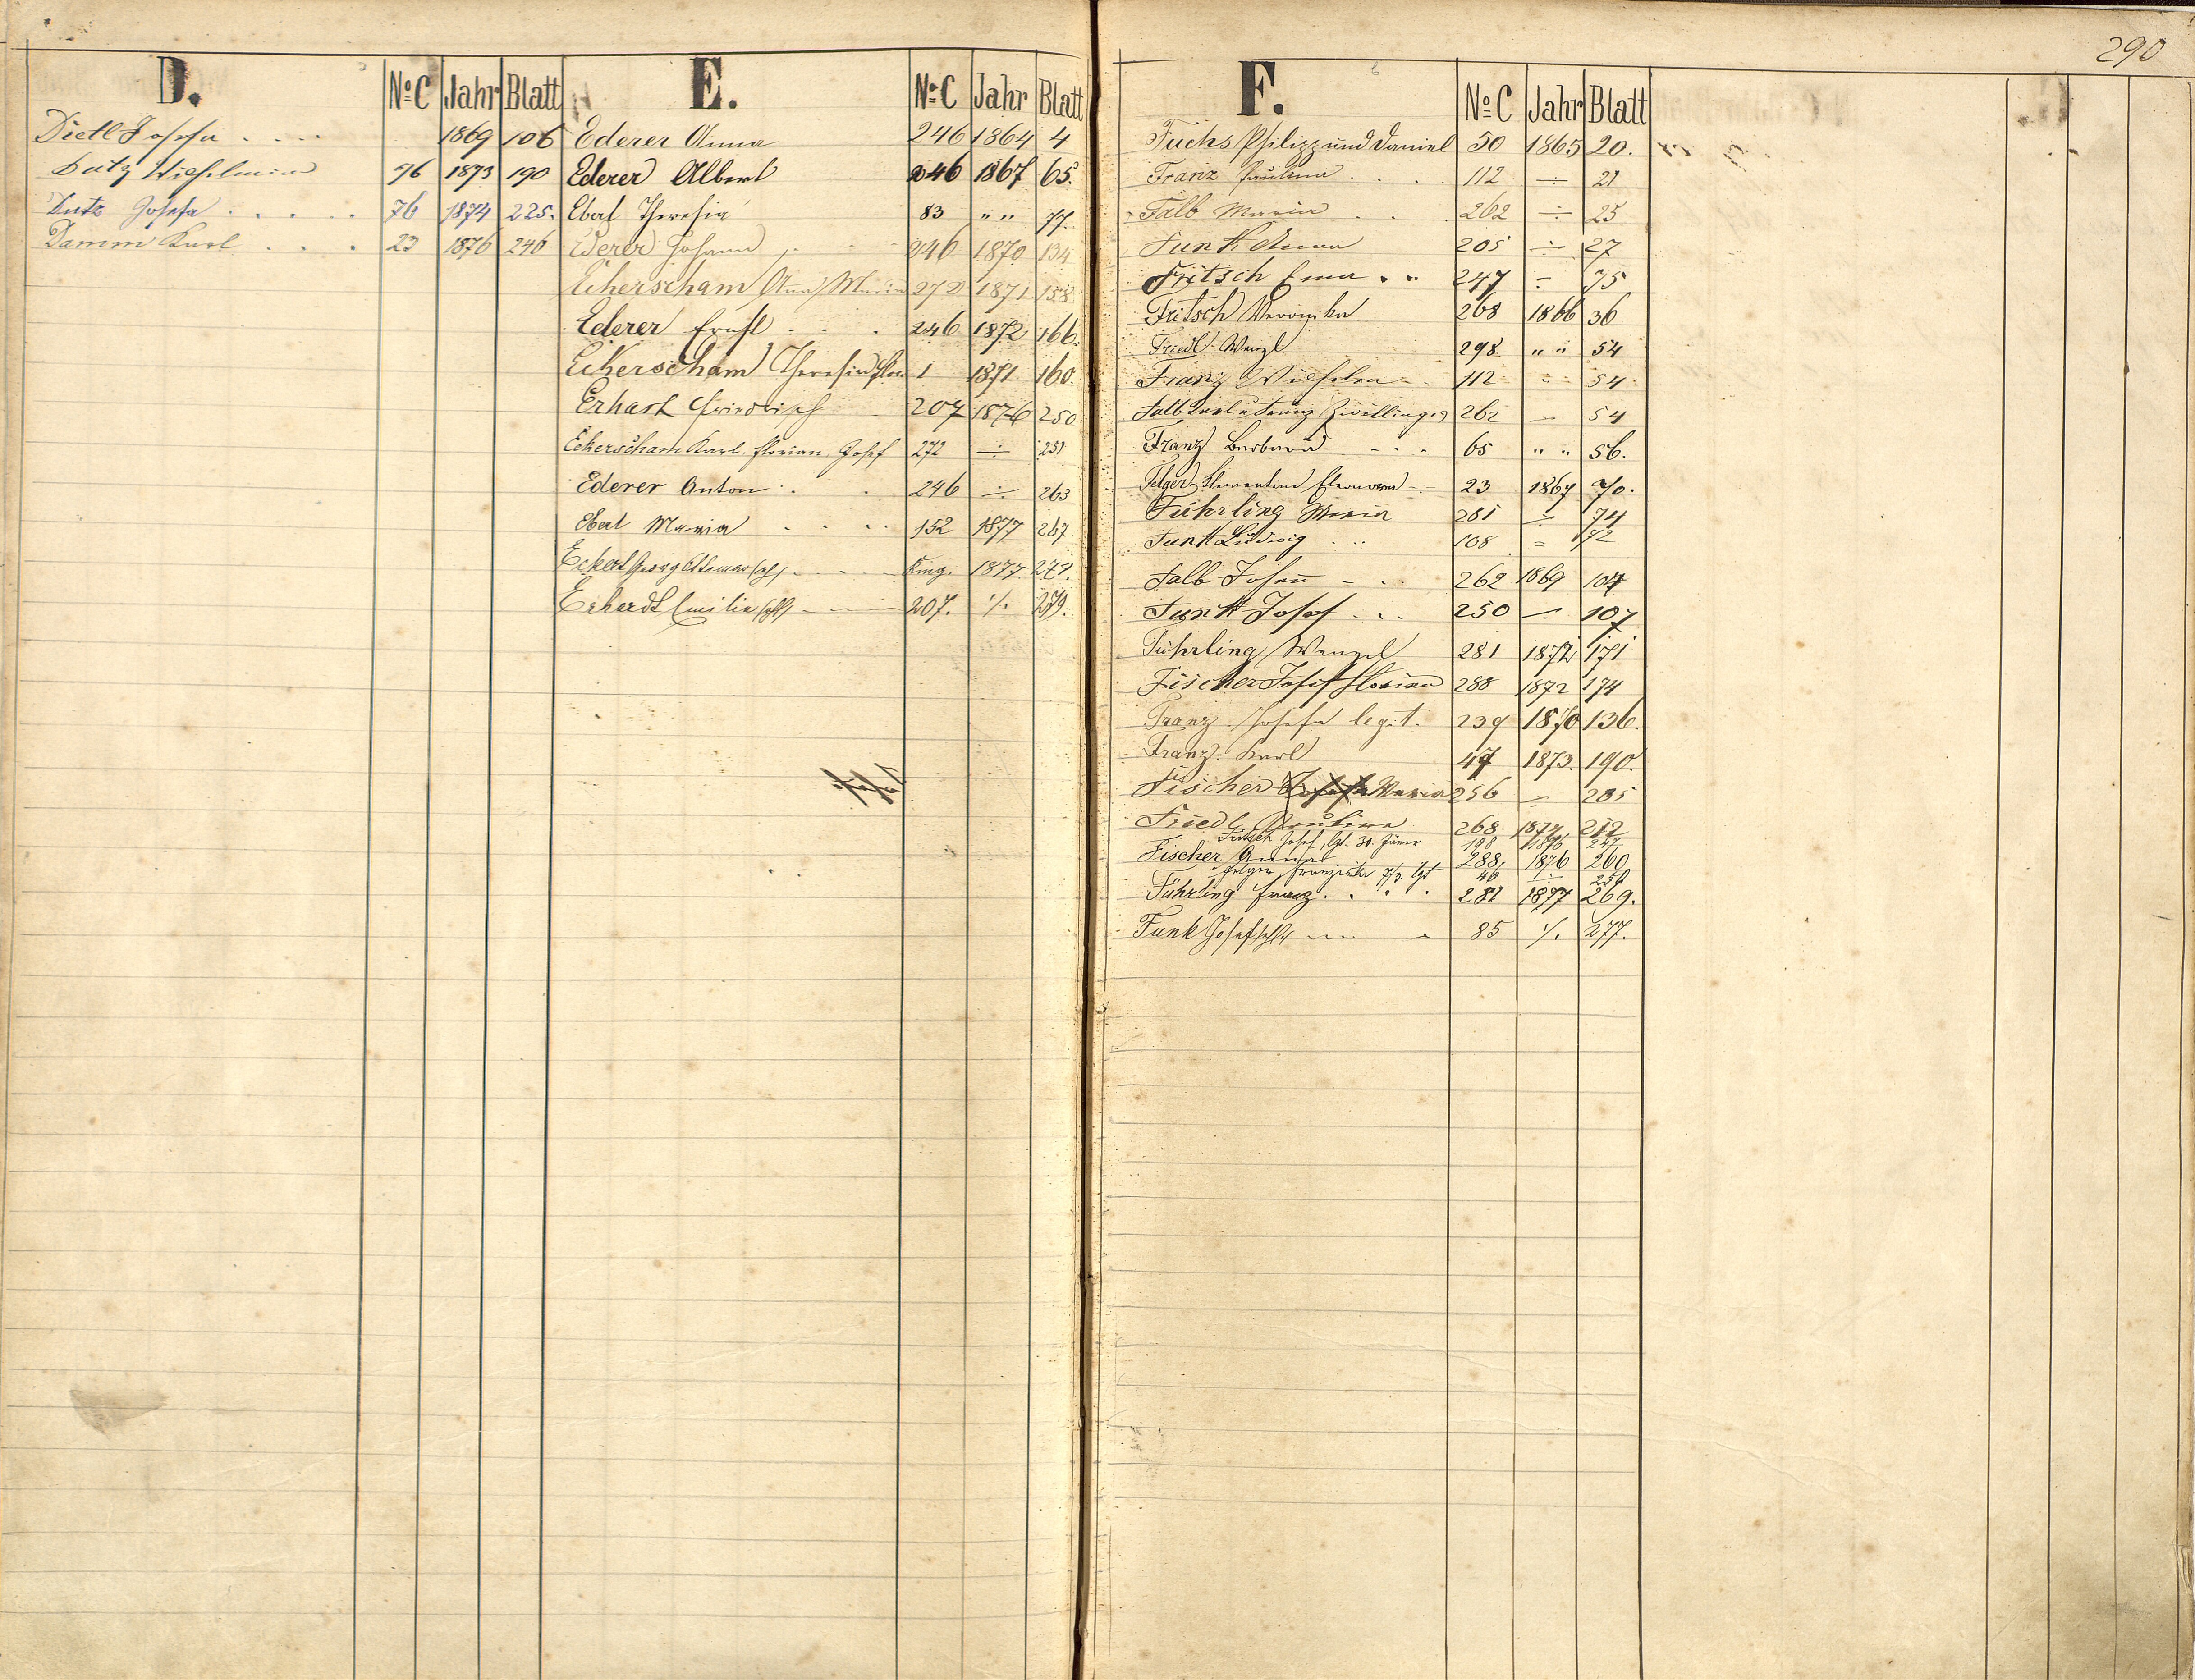 290
D. No C Jahr Blatt
Dietl Josefa . . . . 1869 106
Dutz Wilhelmine 76 1873 190
Dutz Josefa . . . . . 76 1874 225.
Damm Karl . . . 23 1876 246
E. No C Jahr Blatt
Ederer Anna 246 1864 4
Ederer Albert 246 1867 65.
Ebert Theresia 83 " " 77.
Ederer Johann 246 1870 134
Eckerscham Anna Maria 272 1871 158
Ederer Ernst . . . 246 1872 166.
Eckerscham Theresia 1 1871 160.
Erhart Friedrich 207 1876 250
Eckerscham Karl Florian Josef 272 ÷ 251
Ederer Anton . . 246 ÷ 263
Ebert Maria . . . . 152 1877 267
Eckert Georg 1877 274.
Erhardt Emilie 207. ·/. 279.
F. No C Jahr Blatt
Fuchs Philipp und Daniel 50 1865 20.
Franz Paulina . . . . 112 ÷ 21
Falb Maria . . . 262 ÷ 25
Funk Anna 205 ÷ 27
Fritsch Ema . . 247 ÷ 35
Fritsch Veronika 268 1866 36
Friedl Wenzl 298 " " 54
Franz Wilhelm 112 " 54
Falb Karl u Franz Zwillinge 262 — 54
Franz Barbara - - - 65 " " 56.
Felger Klementine Eleonora 23 1867 70.
Führling Maria 281 ÷ 74
Funk Ludwig . . 108 = 72
Falb Johann - . . 262 1869 104
Funk Josef . . . 250 ÷ 107
Führling Wenzel 281 1872 171
Fischer Josef Florian 288 1872 174
Franz Josefa legit. 239 1870 136.
Franz Karl 47 1873. 190.
Fischer Josefa Maria 256 — 205
Friedl Pauline 268 1874 212
Fritsch Josef, 30. Jäner 198 1876 247
Fischer Anna 288, 1876 260
Felger Franziska 46 ÷ 256
Führling Franz . . . . 281 1877 269.
Funk Josef 85 ·/. 277.